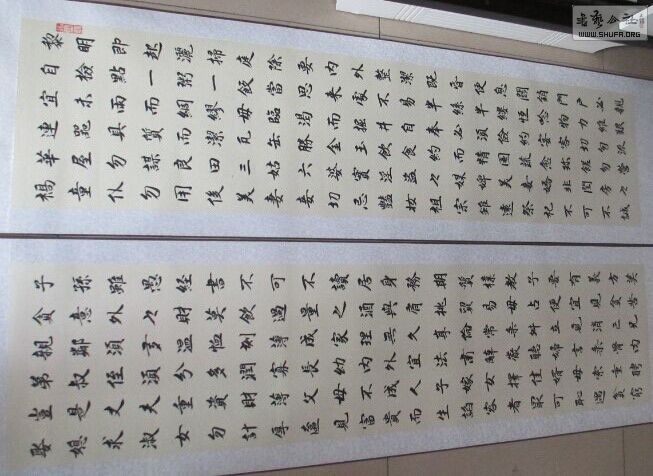 黎明即起灑掃庭除要內外整潔既昏便息關鎖門戶必親
自檢點一粥一飯當思來處不易半絲半縷恆念物力維艱
宜未雨而綢繆毋臨渴而掘井自奉必須儉約宴客切勿流
連器具質而潔瓦缶勝金玉飲食約而精園蔬愈珍饈勿營
華屋勿謀良田三姑六婆實淫盜之媒婢美妾嬌非閨房之
福童仆勿用俊美妻妾切忌豔妝祖宗雖遠祭祀不可不誠
子孫雖愚經書不可不讀居身務期質樸教子要有義方莫
貪意外之財莫飲過量之酒與肩挑貿易毋占便宜見窮苦
親鄰須多溫恤刻薄成家理無久享倫常乖舛立見消亡兄
弟叔侄須分多潤寡長幼內外宜法肅辭嚴聽婦言乖骨肉
豈是丈夫重貲財薄父母不成人子嫁女擇佳婿毋索重聘
娶媳求淑女勿計厚奩見富貴而生諂容者最可恥遇貧窮
WWW.SHUFA.ORG